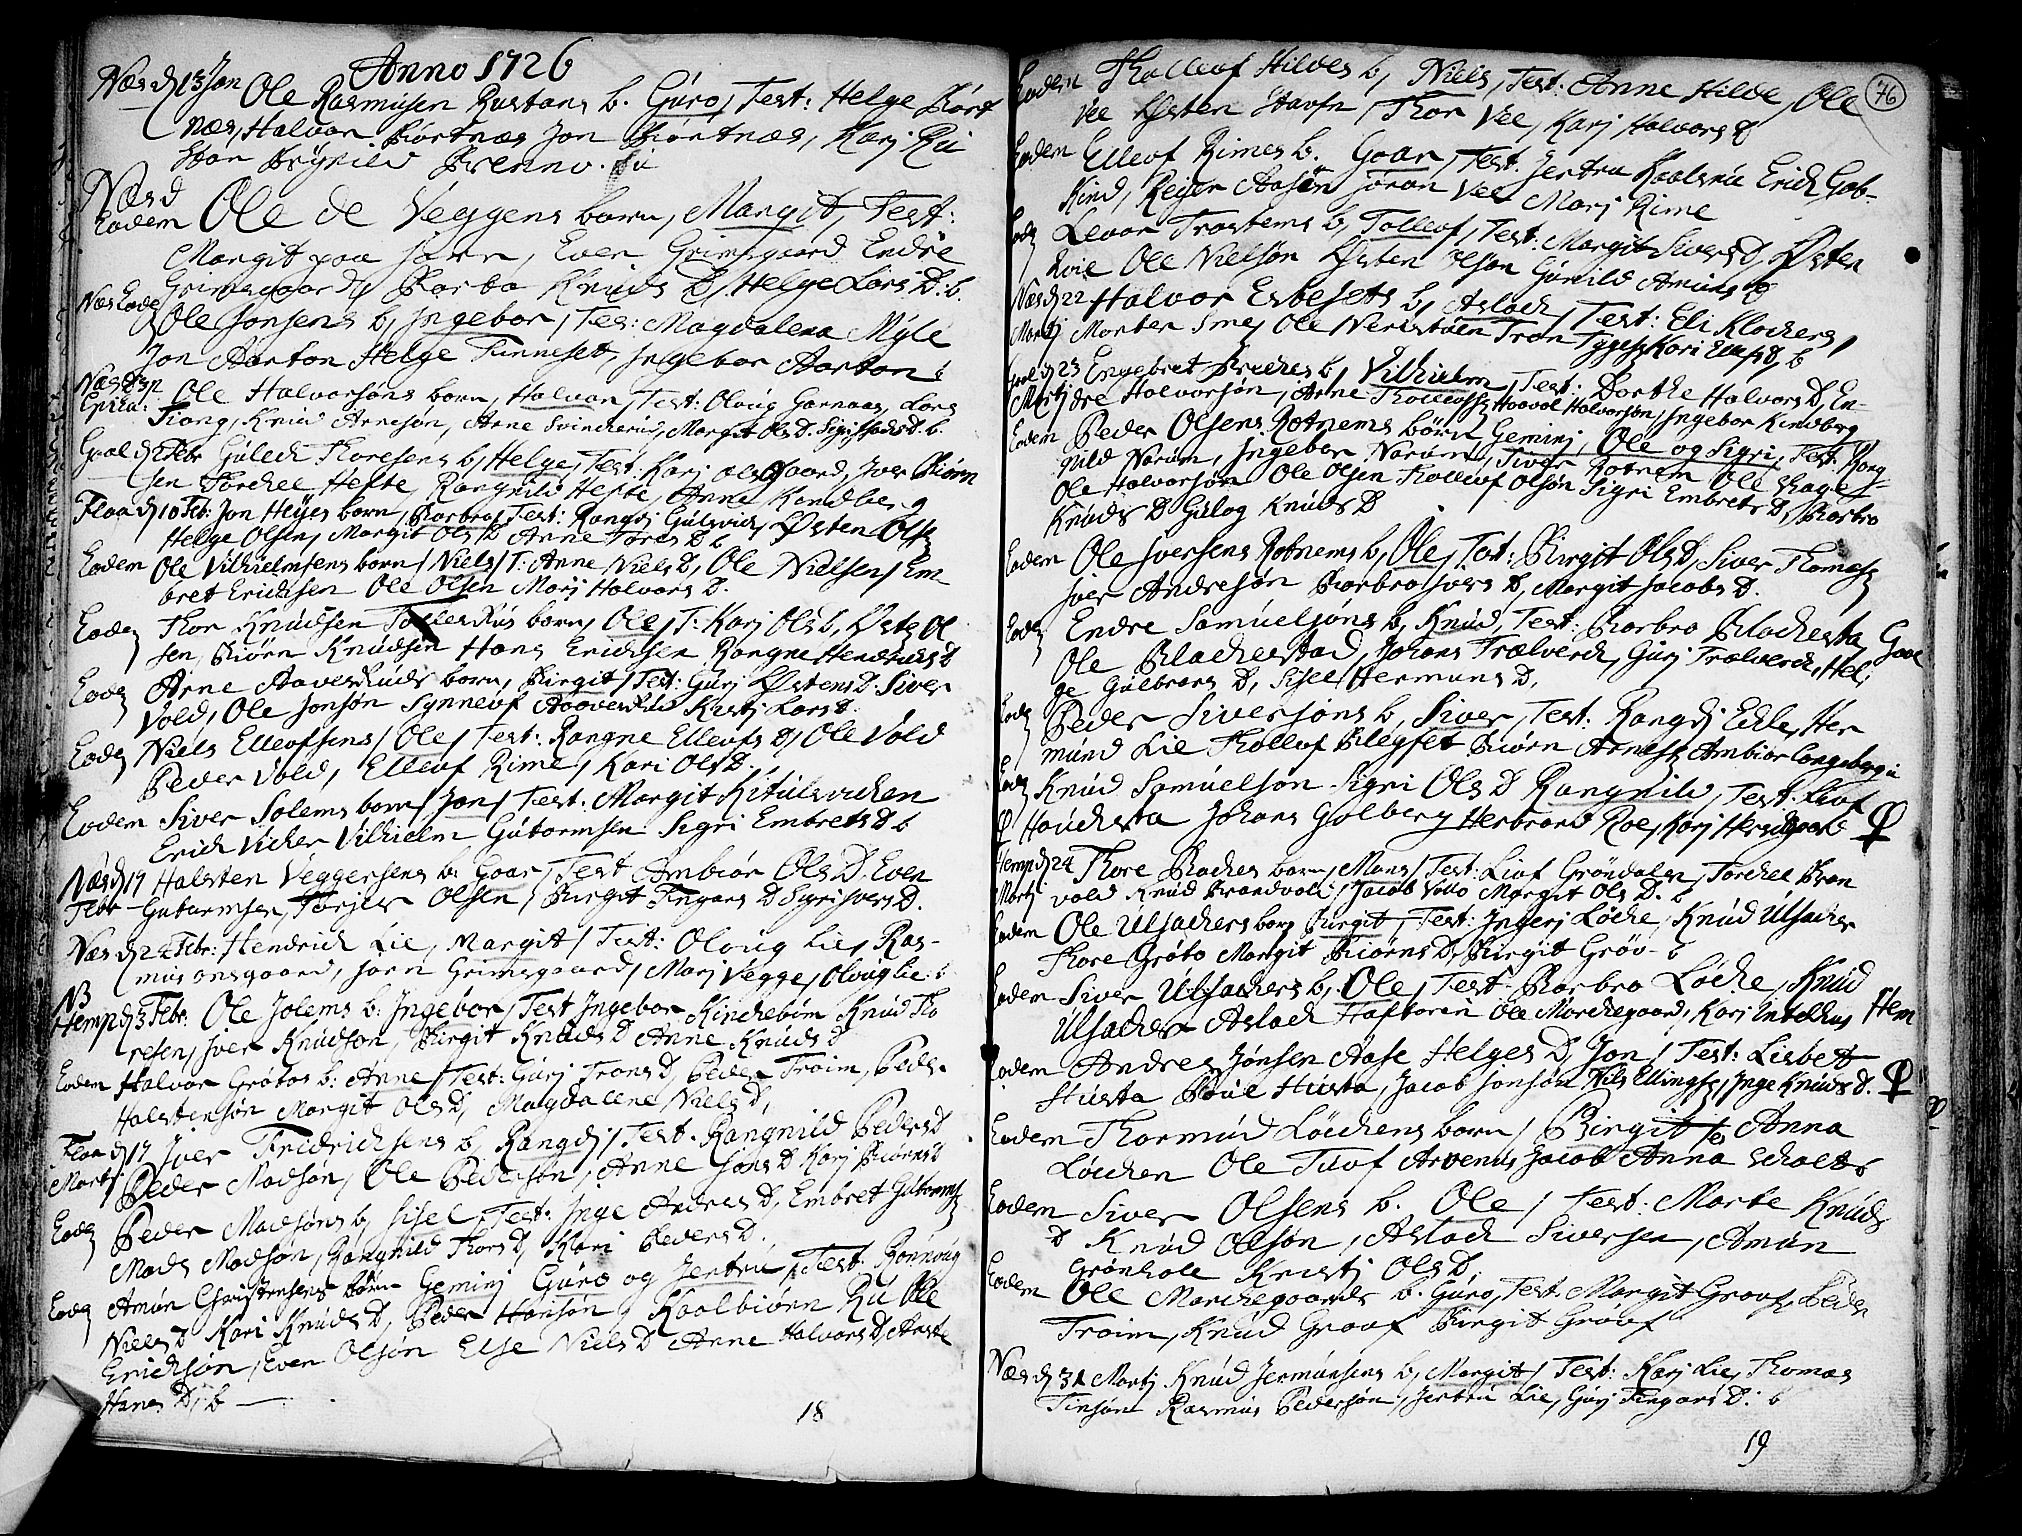 Anno 1726
Næs d 13 Jan Ole Rasmusen Rustans b. Guro, Test: Helge Biørt
næs, Halvor Biørtnæs Jon Biørtnæs, Karj Ru
Star Brynild Brenno.
Næs d
Eodem Ole de Veggens born, Margit, Test:
Margit paa Jorn, Even Grimsgaard Endre
Grimsgaard, Barbo Knuds D, Helge Lars D: b.
Næs Eode Ole Jonsens b, Ingebor, Tes: Magdalena Myle
Jon Aarton Helge Tunneset, Ingebor Aarton b
Ole Halvorsøns born, Halvor, Test: Oloug Garnaas, Lars
Tiong, Knud Arnesøn, Arne Svincherud, Margit Ols D.
Goel d 2 Febr Gulech Thoresens b, Helge, Test: Karj Olsgaard, Joen Biørn
sen Torchel Hefte, Rangnild Hefte, Anne Kindberg
Flaa d 10 Feb: Jon Heyes born, Barbro, Test: Rangdj Gulsvich, Østen Ols
Helge Olsen, Margit Ols D Anne Tores D b
Eodem Ole Vilhielmsens born, Niels, T: Anne Niels D, Ole Nielsen, Em
bret Erichsen Ole Olsen Marj Halvors D.
Eodem Thor Knudsen born, Ole, T: Karj Ols D, Østen Ol
sen, Biørn Knudsen Hans Erichsen Rangne Hendrichs D
Eodem Arne Aaverruds born, Birgit, Test: Gurj Østens D: Siver
Vold, Ole Jonsøn Synnøf Aaverrud Kistj Lars D.
Eodem Niels Ellefsens, Ole, Test: Rangne Ellefs D, Ole Vold
Peder Vold, Ellef Rime, Kari Ols D.
Eodem Siver Solems born, Jon, Test: Margit Kitilsvichen
Erich Vicher Vilhielm Gutormsen Sigri Embrets D b
Næs d 17 Halsten Veggersens b: Goar, Test Ambiør Ols D. Even
Febr Gutormsen, Torjer Olsen, Birgit Fingars D Sigri Ivers D.
Næs d 24 Febr: Hendrich Lie, Margit, Test: Oloug Lie, Ras-
mus onsgaard, Jorn Grimsgaard, Marj Vegge, Oloug Lie: b
NB
Hemp d 3 Febr: Ole Jolems b: Ingebor, Test Ingebor Kinchebøn Knud Tho
resen, Iver Knudson, Birgit Knuds D Anne Knuds D
Eodem Halvor Grøtos b: Anne, Test: Gurj Trons D, Peder Troim, Peder
Halstensøn Margit Ols D, Magdalene Niels D,
Flaa d 17 Iver Fridrichsens b, Rangdj, Test. Rangnild Peders D
Martj Peder Madsøn, Ole Pedersøn, Anne Jons D Karj Biørns D
Eodem Peder Madsøns b, Sisel, Test: Inge Anders D, Embret Gutorms
Mads Madsøn, Rangnild Thors D, Kari Peders D.
Eodem Amun Christensens børn Geminj Guro og Jertru, Test: Rønnoug
Niels D Kari Knuds D, Peder Hansøn, Kaalbiørn Ru Ole
Erichsøn, Even Olsøn Else Niels D Anne Halvors D, Anne
Hans D, b
18
76
Eodem Thollef Hilves b, Niels, Test: Anne Hilde, Ole
Vee Østen Stavn, Thor Vee, Karj Halvors D
Eodem Ellef Rimes b. Goar, Test: Jertru Kaalsrud Erich Gub-
Kind, Reier Aasen Jøran Vee Marj Rime
Eodem Levor Trostems b, Tollef, Test: Margit Sivers D, Østen
Rvie Ole Nielsøn Østen Olsøn Gunild Amunds D
Næs d 22 Halvor Esbesets b, Aslach, Test: Eli Klochers,
Martj Morten Sme, Ole Nerstuen Tron Tygesz Kari Ellefs D, b
Goel d 23 Engebret Bruches b, Vilhielm, Test: Dorthe Halvors D En-
Martj dre Halvorsøn, Arne Thollefsz, Haavol Halvorsøn, Ingebor Kindberg
Eodem Peder Olsens Rotnems børn Geminj, Ole og Sigri, Test: Rang
nild Narum, Ingebor Narum, Siver Rotnem Ole Hage
Ole Halvorsøn Ole Olsen Thollef Olsøn Sigri Embrets D, Barbro
Knuds D Gulog Knuds D
Eodem Ole Iversens Rotnems b, Ole, Test: Birgit Ols D, Siver Thomesz
Iver Andresøn Barbro Ivers D, Margit Jacobs D.
Eodem Endre Samuelsøns b, Knud, Test: Barbro Blachesta Goel
Ole Blachestad, Johans Trælverch, Gurj Trælverch, Hel
ge Gulbrans D, Sisel Hermuns D.
Eodem Peder Siversøns b, Siver, Test: Rangdj Eidle, Her
mund Lie Thollef Blegset Biørn Arnesz Ambiør Langeberg
Eodem Knud Samuelsøn Sigri Ols D Rangnild, Test: Liuf
Hauchesta Johans Golberg Herbrand Roe, Karj
Hemp d 24 Thore Baches born, Mons, Test: Liuf Grøndalen, Torchel Bran
Martj vold Knud Brandvold, Jacob Villo Margit Ols D. b
Eodem Ole Ulsachers born Birgit, Test: Ingerj Løche, Knud Ulsacher
Thore Grøto Margit Biørns D, Birgit Grøv- b
Eodem Siver Ulsachers b, Ole, Test: Barbro Løche, Knud
Ulsacher Aslach Haftorin Ole Morchegaard, Karj Intelhus Hem
Eodem Andres Jonsen Aase Helges D, Jon, Test: Lisbet
Husta Poul Husta, Jacob Jonsøn Nils Ellingsz, Inge Knuds D.
Eodem Thormund Løchens born, Birgit, Tes Anna
Løchen Ole Tuf Arvenus Jacob Anna Scholt b
Eodem Siver Olsens b. Ole, Test: Marte Knuds
D Knud Olsøn, Aslach Siversen, Amun
Grønhole Kristj Ols D.
Eodem Ole Morchegaards b. Guro, Test: Margit Grøf, Peder
Troim, Knud Grøf Birgit Grøf
Næs d 31 Martj Knud Jermunsens b, Margit, Test: Karj Lie, Thomas
Finsøn Rasmus Pedersøn, Jertru Lie, Gurj Fingars D: b
19